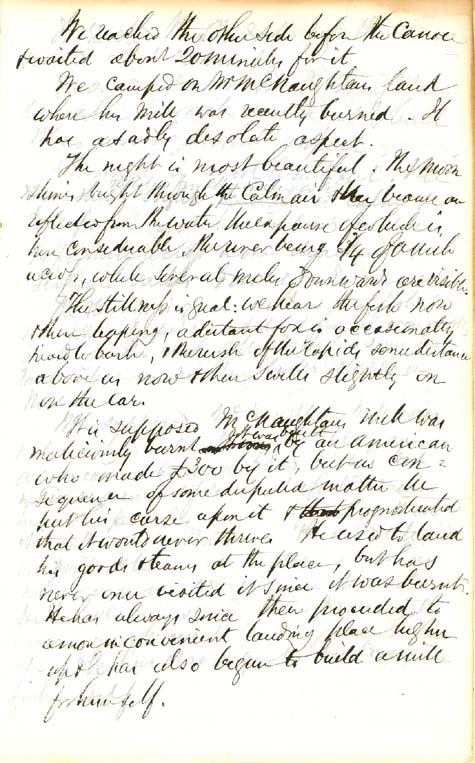 We reached the other side before the Canoe
& waited about 20 minutes for it
We camped on Mr McNaughtans land
where his Mill was recently burned. It
has a sadly desolate aspect.
The night is most beautiful. The Moon
shines bright through the Calm air & her beams are
reflected from the water the expanse of which is
here considerable, the river being 3/4 of a Mile
across, while several miles downwards are visible.
The stillness is great: we hear the fish now
& then leaping, a distant fox is occasionally
heard to bark, & the rush of the rapids some distance
above us now & then swells slightly on
on the ear.
It is supposed McNaughtans Mill was
maliciously burnt It was built by an American
who made £300 by it, but in con=
sequence of some disputed matter he
put his curse upon it & prognosticated
that it would never thrive. He used to land
his goods & teams at the place, but has
never once visited it since it was burnt.
He has always since then proceeded to
a more inconvenient landing place higher
up & has also begun to build a mill
for himself.